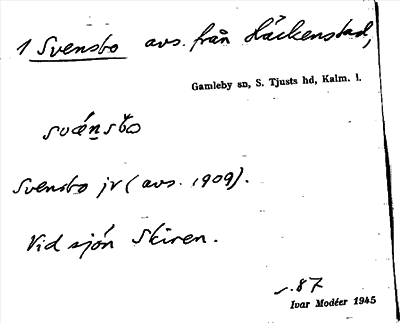 1 Svensbo avs. från Häckenstad,
Gamleby sn, S. Tjusts hd, Kalm. l.
Svensbo jr (avs. 1909).
Vid sjön Skiren.
s. 87
Ivar Modéer 1945